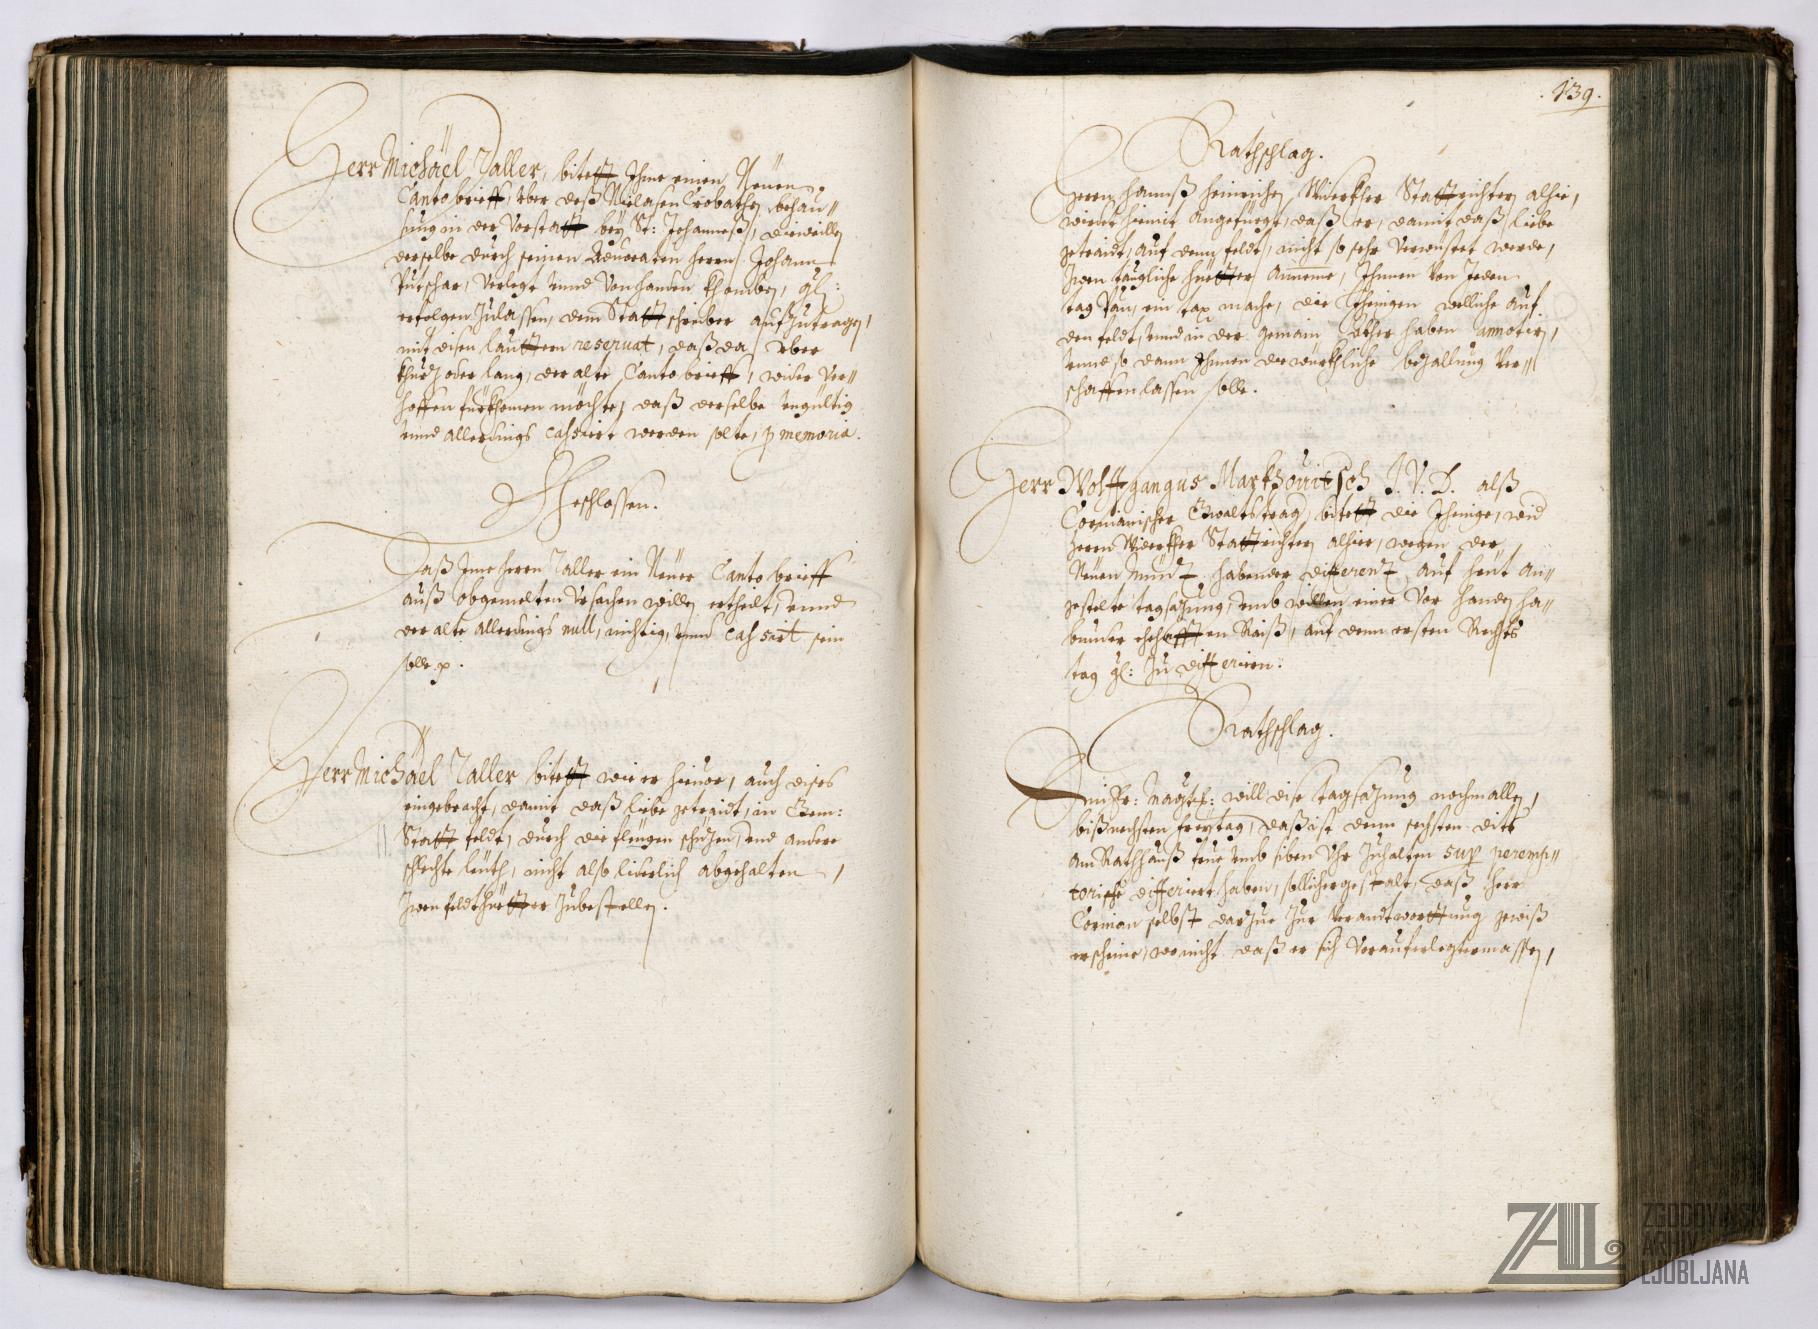 Herr Michäel Zaller, bitett Ihme einen Neuen
Canto brieff, vber deß Niclasen Crobathen behau//
sung in der Vorstatt bey St: Johanneß, dieweillen
derselbe durch seinen Aduocaten Herrn Johann
Putschar, verlegt vnnd Vonhanden khomben, gl:
erfolgen Zulassen, dem Stattschreiber aufzutragen,
mit disen lauttern reseruat, daß da vber
khurz oder lang, der alte Canto brieff, wider ver//
hoffen fürkhomen möchte, daß derselbe vngültig
vnnd allerdings cassiert werden solte, p memoria.
Gschlossen.
Daß Ime Herrn Zaller ein Neuer Canto brieff
auß obgemelten Vrsachen willen ertheilt, vnnd
der alte allerdings null, nichtig, vnnd cassiert sein
solle p.
Herr Michäel Zaller bitett wie er hieuor, auch dises
eingebracht, damit daß liebe getraidt, in Gem:
Statt feldt, durch die fliegen schizen, vnd andere
schlechte leuth, nicht also liderlich abgehalten,
Zwen feldthüetter Zubestellen.
139.
Rathschlag.
Herrn Hannß Heinrichen Widerkher Stattrichtern alhie,
wierdt hiemit angefüegt, daß er, damit daß liebe
getraidt, auf dem feldt, nicht so sehr verwüstet werde,
Zwen taugliche hüetter aufneme, Ihnnen von Jeden
tag Zan, ein tax mache, die Jhenigen welliche auf
den feldt, vnnd in der gemain äkher haben annotiern,
vnnd so dann Ihnnen die würkhliche bezallung ver//
schaffen lassen solle.
Herr Wolffgangus Markhouitsch J. V. D. alß
Cormanischer Gwaltstrag, bitett die Jhenige, mid
Herrn Widerkher Stattrichtern alhier, wegen der
Neuen Münz habender differenz, auf heut an//
gestelte tagsazung, vmb willen einer vor handen ha//
bunder ehehafften Raiß, auf denn ersten Rechts
tag gl: Zu differirn.
Rathschlag.
Ain Er: Magist: will dise tagsazung nochmallen,
biß nechsten freytag, daß ist denn sechsten dits
am Rathhauß frue vmb siben Vhr Zuhalten sup peremp//
toriche differiert haben, sollichergestalt, daß Herr
Corman selbst darzue Zur Verandtworttung gewiß
erscheine, wo nicht daß er sich Vorauferlegtermassen,
ZAL ZGODOVINSKI
ARHIV
LJUBLJANA